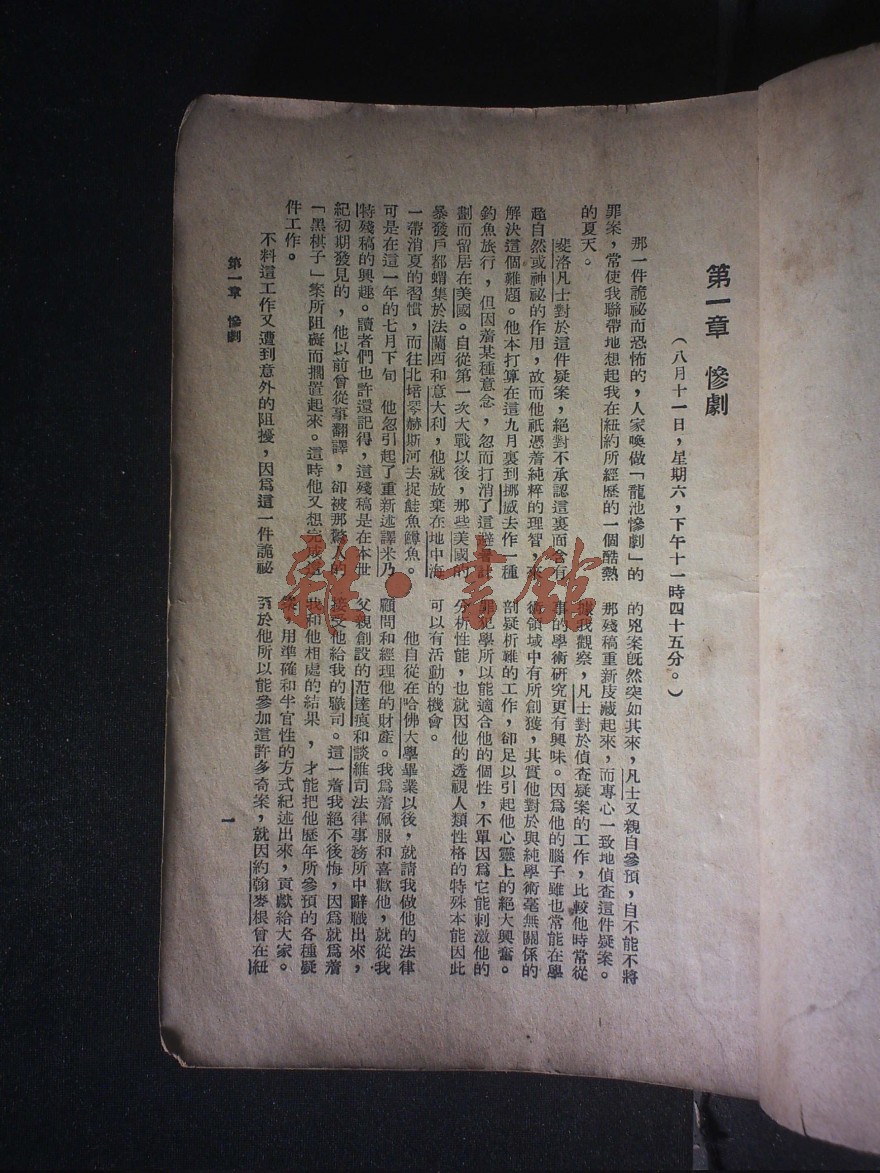 第一章　慘劇
（八月十一日，星期六，下午十一時四十五分。）
那一件詭祕而恐怖的，人家喚做「龍池慘劇」的
罪案，常使我聯帶地想起我在紐約所經歷的一個酷熱
的夏天。
斐洛凡士對於這件疑案，絕對不承認這裏面含有
超自然或神祕的作用，故而他祇憑着純粹的理智，來
解決這個難題。他本打算在這九月裏到挪威去作一種
釣魚旅行，但因着某種意念，忽而打消了這避暑計
劃而留居在美國。自從第一次大戰以後，那些美國的
暴發戶都蝟集於法蘭西和意大利，他就放棄在地中海
一帶消夏的習慣，而往北塔琴赫斯河去捉鮭魚鱒魚。
可是在這一年的七月下旬　他忽引起了重新述譯米乃
特殘稿的興趣。讀者們也許還記得，這殘稿是在本世
紀初期發見的，他以前曾從事翻譯，卻被那驚人的
「黑棋子」案所阻礙而擱置起來。這時他又想完成這
件工作。
不料這工作又遭到意外的阻擾，因爲這一件詭祕
的兇案旣然突如其來，凡士又親自參預，自不能不將
那殘稿重新庋藏起來，而專心一致地偵查這件疑案。
據我觀察，凡士對於偵查疑案的工作，比較他時常從
事的學術硏究更有興味。因爲他的腦子雖也常能在學
術領域中有所創獲，其實他對於與純學術毫無關係的
剖疑析難的工作，卻足以引起他心靈上的絕大興奮。
罪犯學所以能適合他的個性，不單因爲它能刺激他的
分析性能，也就因他的透視人類性格的特殊本能因此
可以有活動的機會。
他自從在哈佛大學畢業以後，就請我做他的法律
顧問和經理他的財產。我爲着佩服和喜歡他，就從我
父親創設的范達痕和談維司法律事務所中辭職出來，
接受他給我的職司。這一着我絕不後悔，因爲就爲着
我和他相處的結果　，才能把他歷年所參預的各種疑
案，用準確和半官性的方式紀述出來，貢獻給大家。
至於他所以能參加這許多奇案，就因約翰麥根曾在紐
第一章　慘劇
一
雜·書館